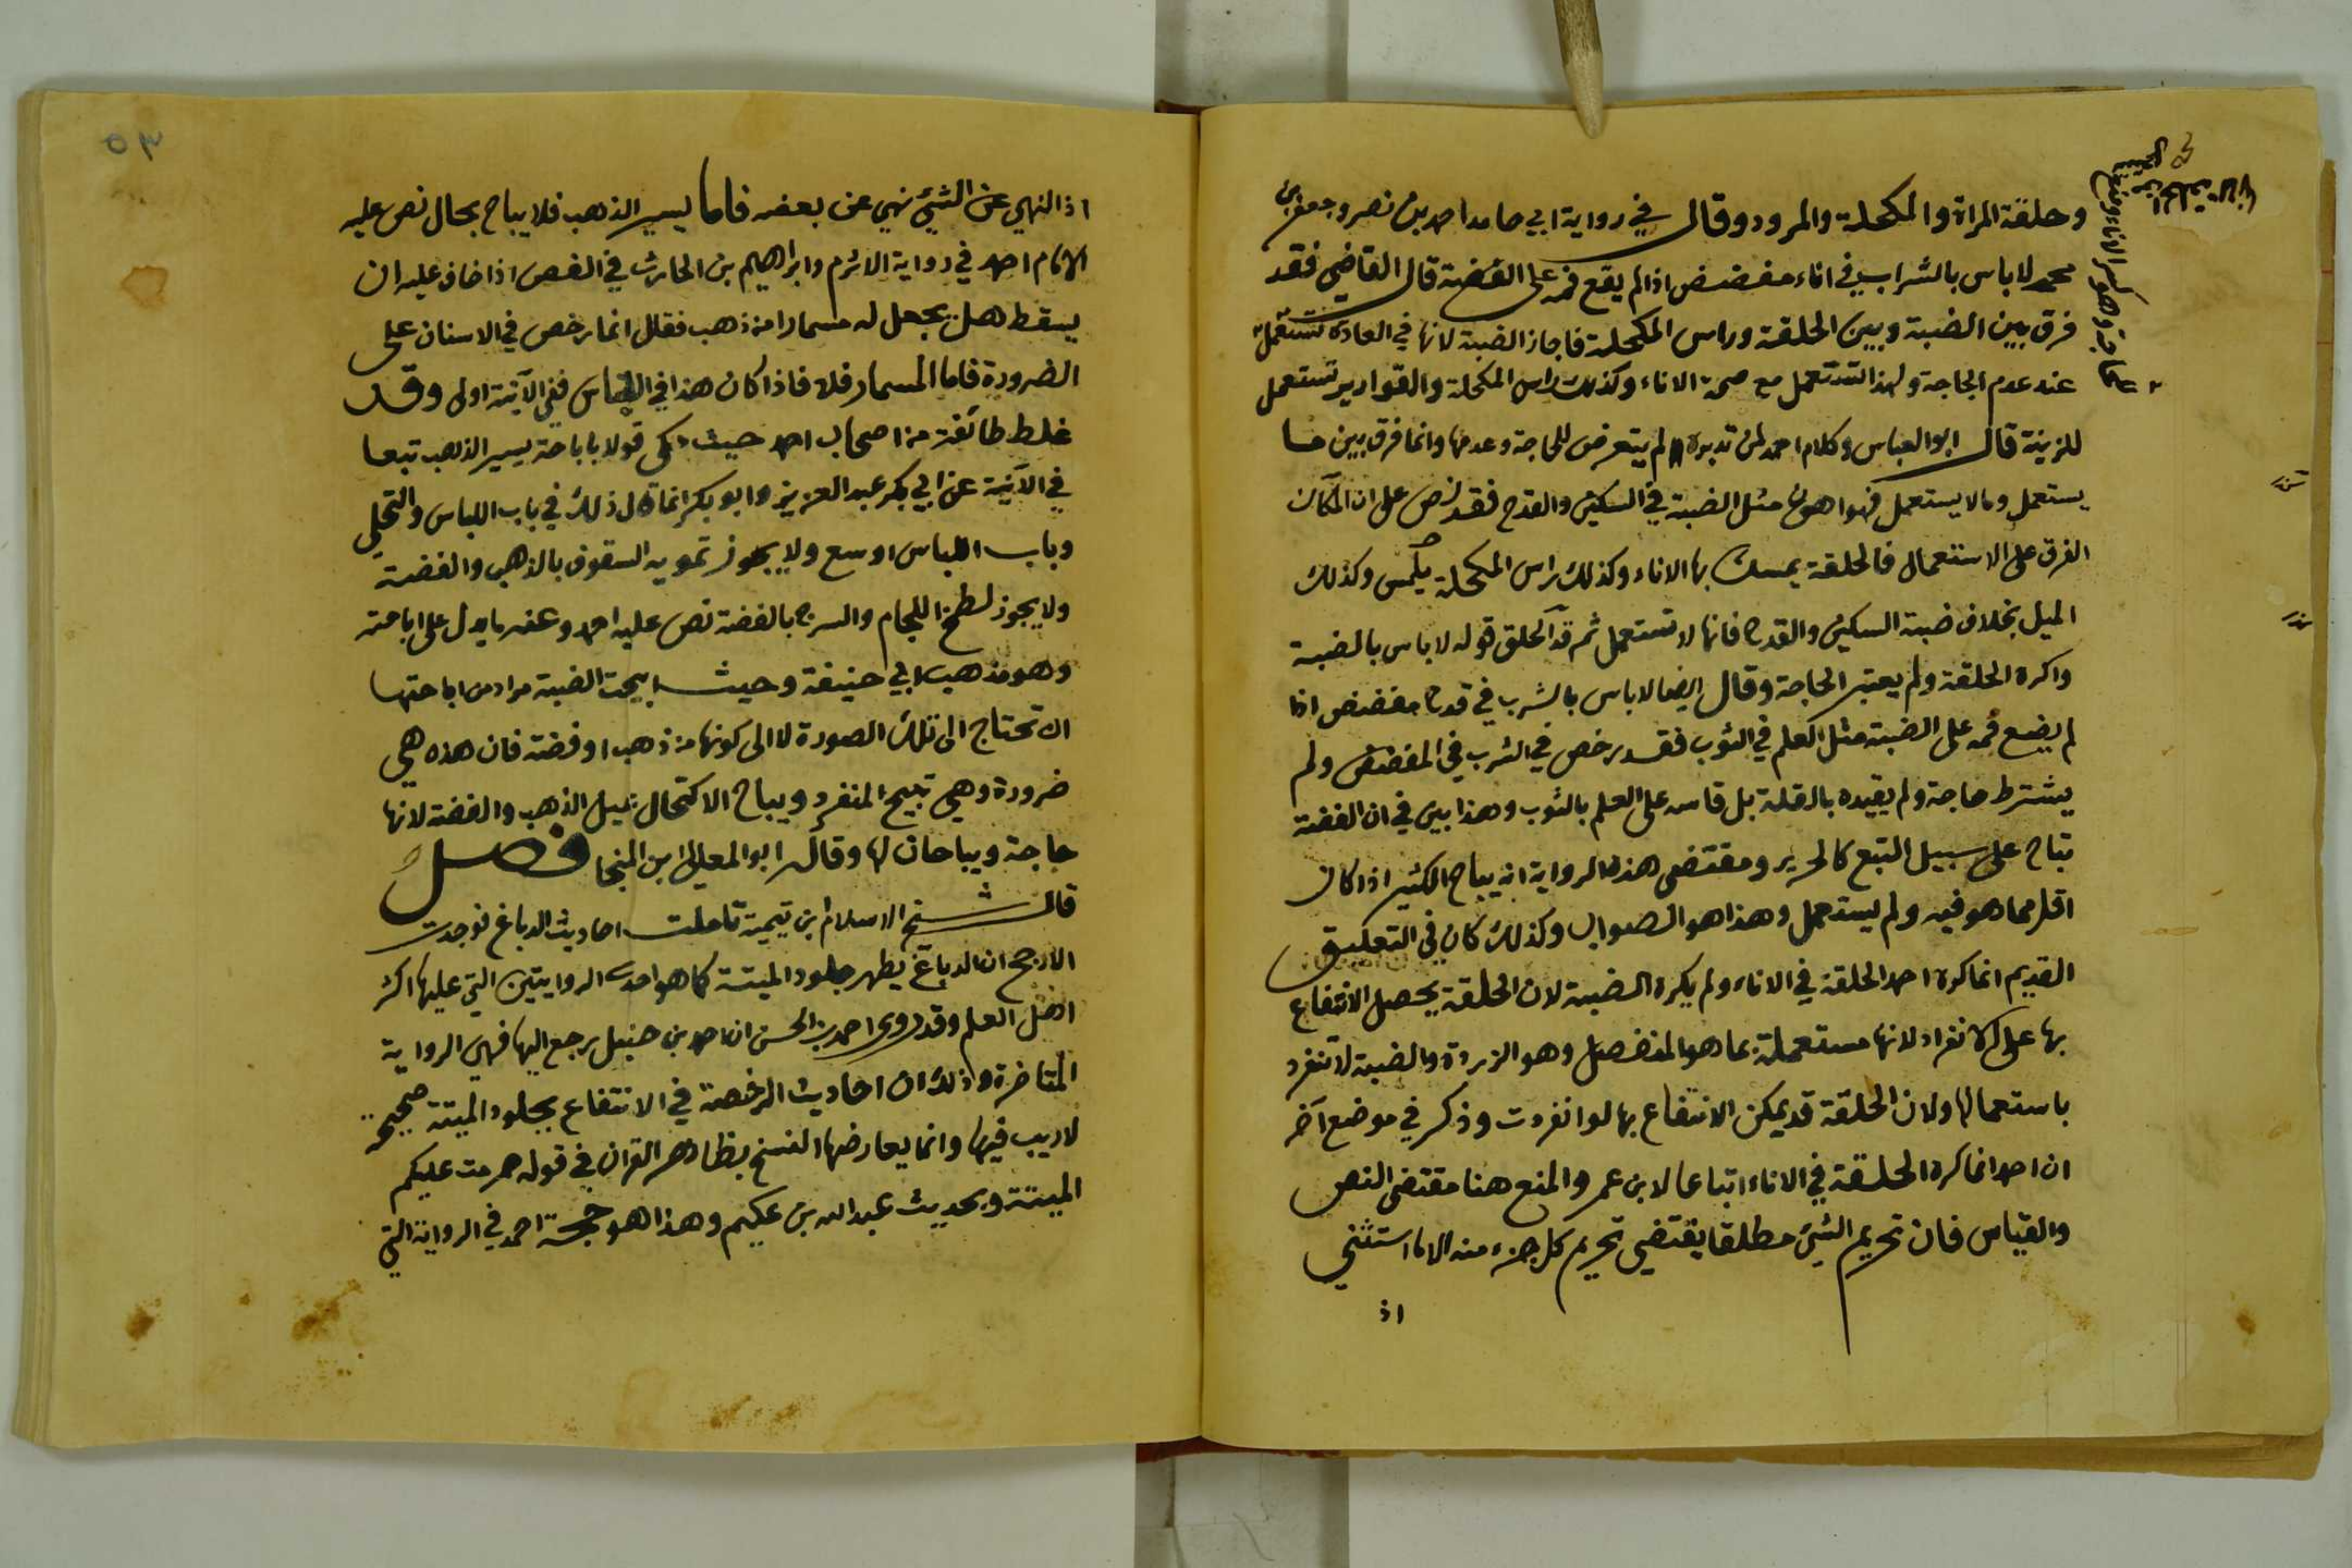 وحلقة المراة والمكحلة والمرود وقال في رواية ابي حامد احمد بن نصر وجعفر بن
محمد لا باس بالشراب في اناء مفضض اذا لم يقع فمه على الفضة قال القاضي فقد
فرق بين الضبة وبين الحلقة وراس المكحلة فاجاز الضبة لانها في العادة تستعمل
عند عدم الحاجة ولهذا تستعمل مع صحة الاناء وكذلك راس المكحلة والقوارير تستعمل
للزينة قال ابو العباس وكلام احمد لمن تدبره لم يتعرض للحاجة وعدمها وانما فرق بين ما
يستعمل وما لا يستعمل مثل الضبة في السكين والقدح فقد نص على ان
الفرق على الاستعمال فالحلقة يمسك بها الاناء وكذلك راس المكحلة يلمس وكذلك
الميل بخلاف ضبة السكين والقدح فانها لا تستعمل ثم قد اطلق قوله لا باس بالضبة
واكره الحلقة ولم يعتبر الحاجة وقال ايضا لا باس بالشرب في قدح مفضض اذا
لم يضع فمه على الضبة مثل العلم في الثوب فقد رخص في الشرب في المفضض ولم
يشترط حاجة ولم يقيده بالقلة بل قاسه على العلم بالثوب وهذا بين في ان الفضة
تباح على سبيل التبع كالحرير ومقتضى هذه الرواية انه يباح الكثير اذا كان
اقل مما هو فيه ولم يستعمل وهذا هو الصواب وكذلك كان في التعليق
القديم انما كره احمد الحلقة في الاناء ولم يكره الضبة لان الحلقة يحصل الانتفاع
بها على الانفراد لانها مستعملة بما هو المنفصل وهو الزردة والضبة لا تنفرد
باستعمالها ولان الحلقة قد يمكن الانتفاع بها لو انفردت وذكر في موضع آخر
ان احمد انما كره الحلقة في الاناء اتباعا لابن عمر والمنع هنا مقتضى النص
والقياس فان تحريم الشيء مطلقا يقتضي تحريم كل جزء منه الا ما استثني
اذ
٥٣
اذ النهي عن الشيء نهي عن بعضه فاما يسير الذهب فلا يباح بحال نص عليه
الامام احمد في رواية الاثرم وابراهيم بن الحارث في الفص اذا خاف عليه ان
يسقط هل يجعل له مسمارا من ذهب فقال انما رخص في الاسنان على
الضرورة فاما المسمار فلا فاذا كان هذا في اللباس ففي الآنية اولى وقد
غلط طائفة من اصحاب احمد حيث حكى قولا باباحة يسير الذهب تبعا
في الآنية عن ابي بكر عبد العزيز وابو بكر انما قال ذلك في باب اللباس والتحلي
وباب اللباس اوسع ولا يجوز تمويه السقوف بالذهب والفضة
ولا يجوز لطخ اللجام والسرج بالفضة نص عليه احمد وعنه ما يدل على اباحته
وهو مذهب ابي حنيفة وحيث ابيحت الضبة مراد من اباحتها
ان تحتاج الى تلك الصورة لا الى كونها من ذهب او فضة فان هذه هي
ضرورة وهي تبيح المنفرد ويباح الاكتحال بميل الذهب والفضة لانها
حاجة ويباحان لها وقاله ابو المعالي ابن المنجا فصل
قال شيخ الاسلام ابن تيمية تاملت احاديث الدباغ فوجدت
الارجح ان الدباغ يطهر جلود الميتة كما هو احدى الروايتين التي عليها اكثر
اهل العلم وقد روى احمد بن الحسن ان احمد بن حنبل رجع اليها فهي الرواية
المتاخرة وذلك ان احاديث الرخصة في الانتفاع بجلود الميتة صحيحة
لا ريب فيها وانما يعارضها النسخ بظاهر القران في قوله حرمت عليكم
الميتة وبحديث عبد الله بن عكيم وهذا هو حجة احمد في الرواية التي